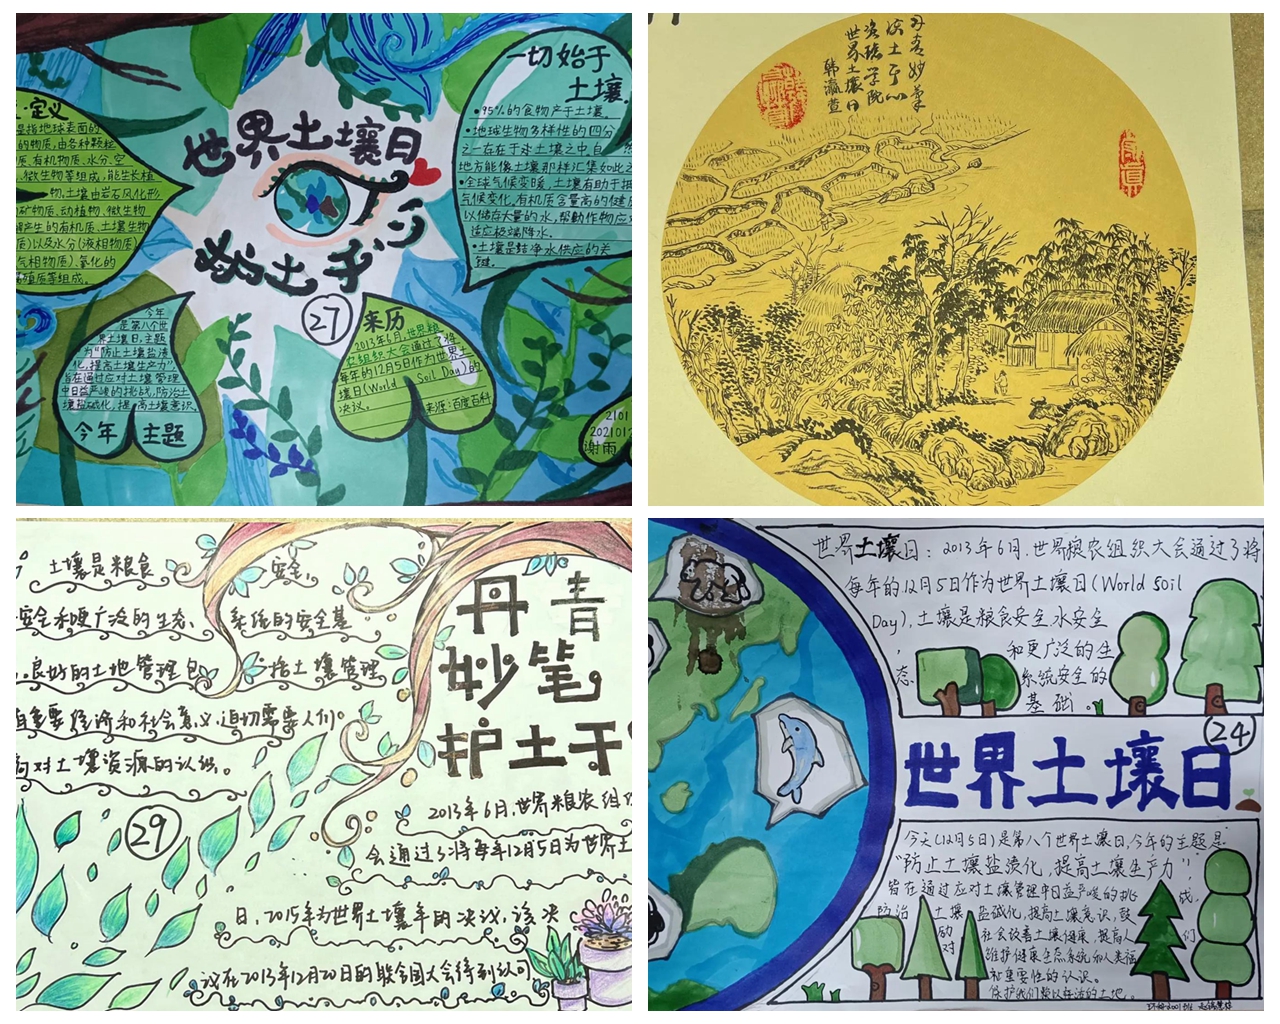 世界土壤日
护土于心
定义
是指地球表面的
的物质,由各种颗粒
质、有机物质、水分、空
微生物等组成,能生长植
物。土壤由岩石风化形
矿物质、动植物、微生物
解产生的有机质、土壤生物
质)以及水分(液相物质)
气相物质)、氧化的
腐殖质等组成。
一切始于
土壤
·95%的食物产于土壤。
·地球生物多样性的四分
之一存在于本土壤之中,自
地方能像土壤那样汇集如此之
·全球气候变暖,土壤有助于抵
气候变化,有机质含量高的健康
以储存大量的水,帮助作物应对
适应极端降水。
·土壤是洁净水供应的关
键。
今年
是第八个世
界土壤日,主题
为"防止土壤盐渍
化,提高土壤生产力"
旨在通过应对土壤管理
中日益严峻的挑战,防治土
壤盐碱化,提高土壤意识
今年 主题
27
来历
2013年6月,世界粮
农组织大会通过了将
每年的12月5日作为世界土
壤日(World Soil Day)的
决议。
来源:百度百科
2101
202101
谢雨
丹青妙笔
护土于心
资环学院
世界土壤日
韩瀛萱
土壤是粮食 安全、
安全和更广泛的生态 系统的安全基
良好的土地管理包 括土壤管理
有重要经济和社会意义,迫切需要人们
高对土壤资源的认识。
29
丹青
妙笔
护土于
2013年6月,世界粮农组织
会通过了将每年12月5日为世界土
日,2015年为世界土壤年的决议,该决
议在2013年12月20日的联合国大会得到认可
世界土壤日:2013年6月,世界粮农组织大会通过了将
每年的12月5日作为世界土壤日(World Soil
Day),土壤是粮食安全、水安全
和更广泛的生
态 系统安全的
基础。
24
世界土壤日
今天(12月5日)是第八个世界土壤日,今年的主题是
"防止土壤盐渍化,提高土壤生产力",
旨在通过应对土壤管理中日益严峻的挑 战,
防治 土壤 盐碱化,提高土壤意识,鼓
励 社会改善土壤健康,提高人 们
对 维护健康生态系统和人类福
祉重要性的认识。
保护我们赖以生活的土地。